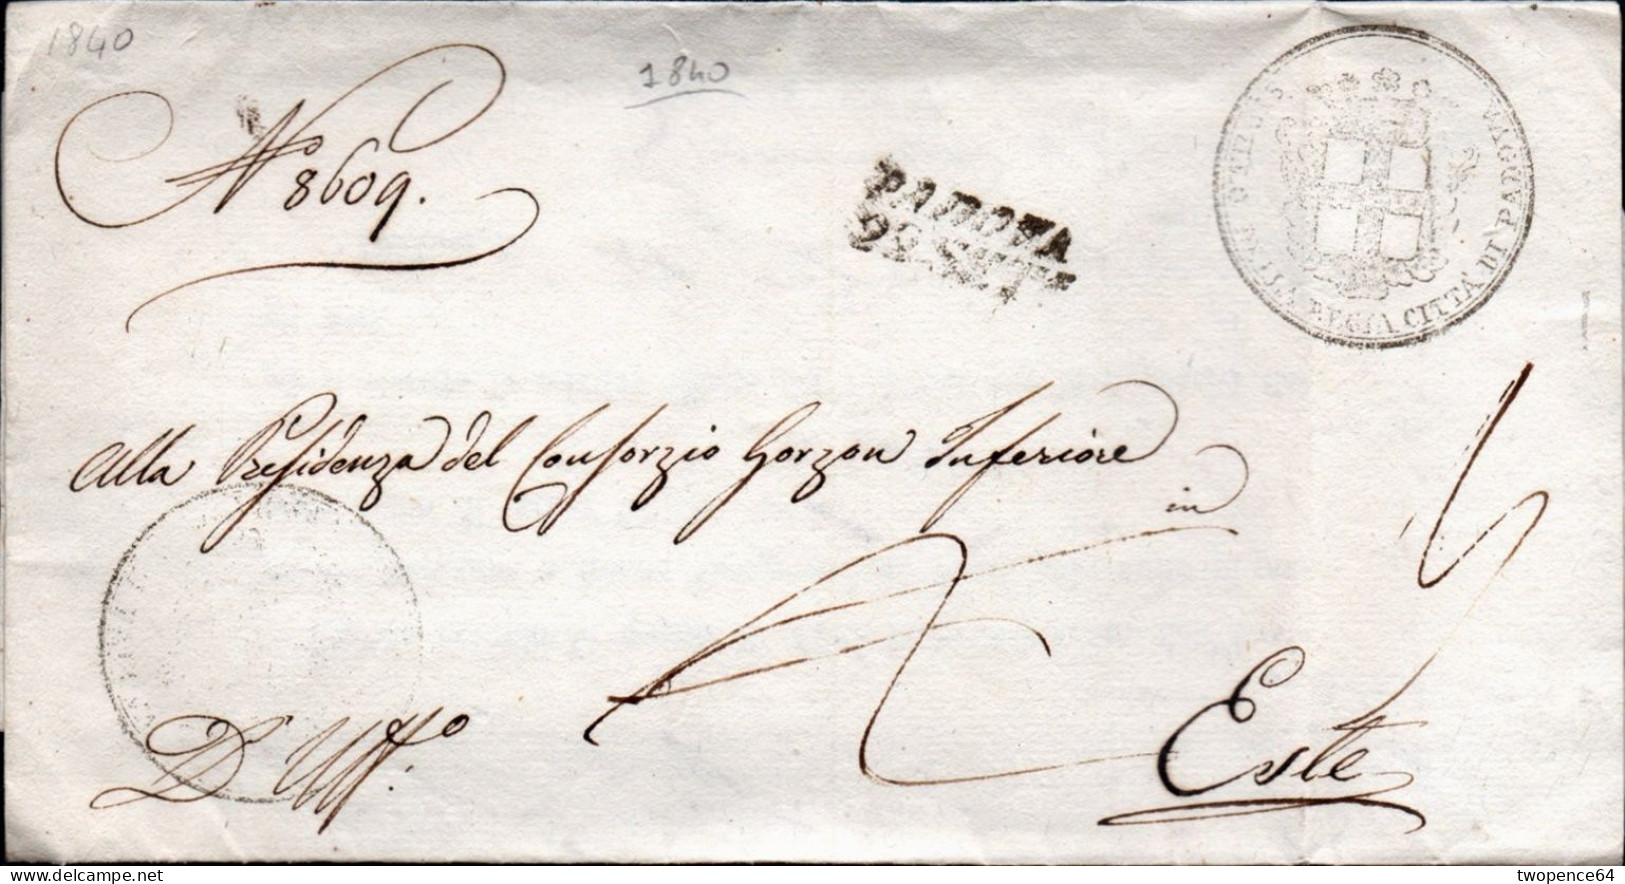 1840
1840
Nº 8609.
PADOVA
DELLA REGIA CITTÀ DI PADOVA
Alla Presidenza del Consorzio Gorzon Inferiore
in
Este
D'Uffº.
delcampe.net
twopence64